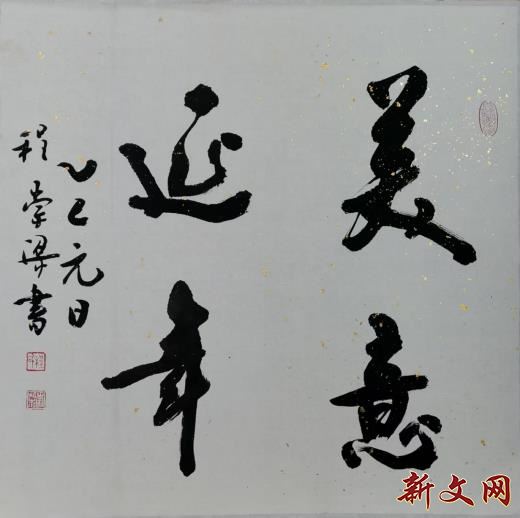 美意
延年
乙巳元日
程崇梁書
新文网